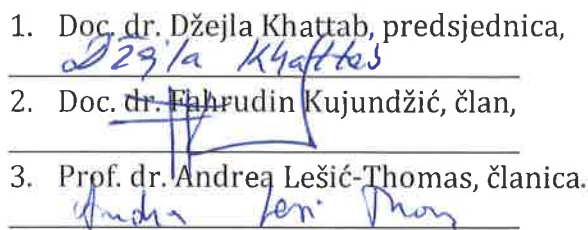 1. Doc. dr. Džejla Khattab, predsjednica,
Džejla Khattab
2. Doc. dr. Fahrudin Kujundžić, član,
3. Prof. dr. Andrea Lešić-Thomas, članica.
Andrea Lešić Thomas